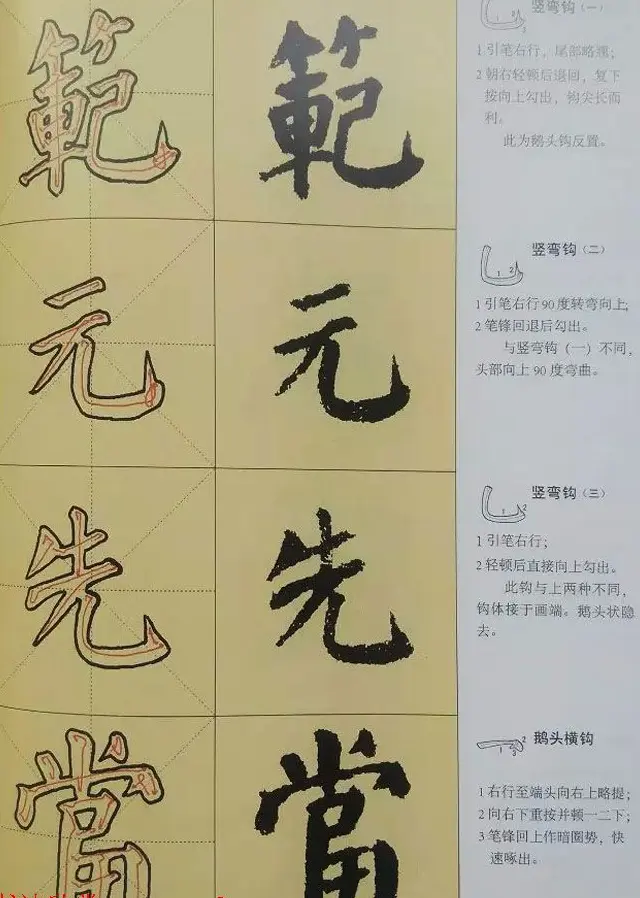 範 範 竖弯钩（一）
1 引笔右行，尾部略重；
2 朝右轻顿后退回，复下
按向上勾出，钩尖长而
利。
此为鹅头钩反置。
元 元 竖弯钩（二）
1 引笔右行90度转弯向上；
2 笔锋回退后勾出。
与竖弯钩（一）不同，
头部向上90度弯曲。
先 先 竖弯钩（三）
1 引笔右行；
2 轻顿后直接向上勾出。
此钩与上两种不同，
钩体接于画端。鹅头状隐
去。
當 當 鹅头横钩
1 右行至端头向右上略提；
2 向右下重按并顿一二下；
3 笔锋回上作暗圈势，快
速啄出。